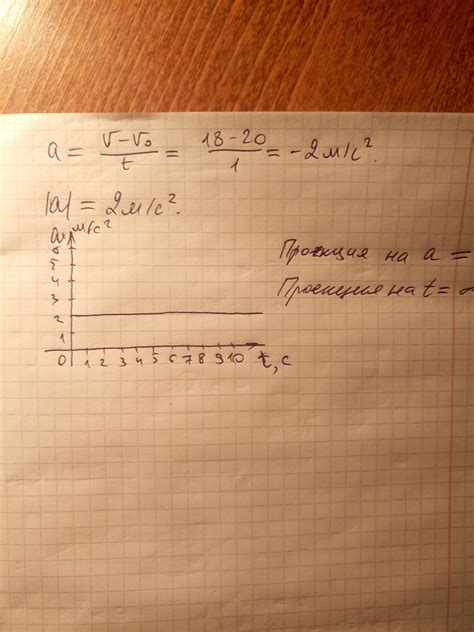 a = (v - v₀)/t = (18 - 20)/1 = -2 м/с².
|a| = 2 м/с².
aₓ м/с²
6
5
4
3
2
1
0 1 2 3 4 5 6 7 8 9 10 t, с
Проекция на a =
Проекция на t =